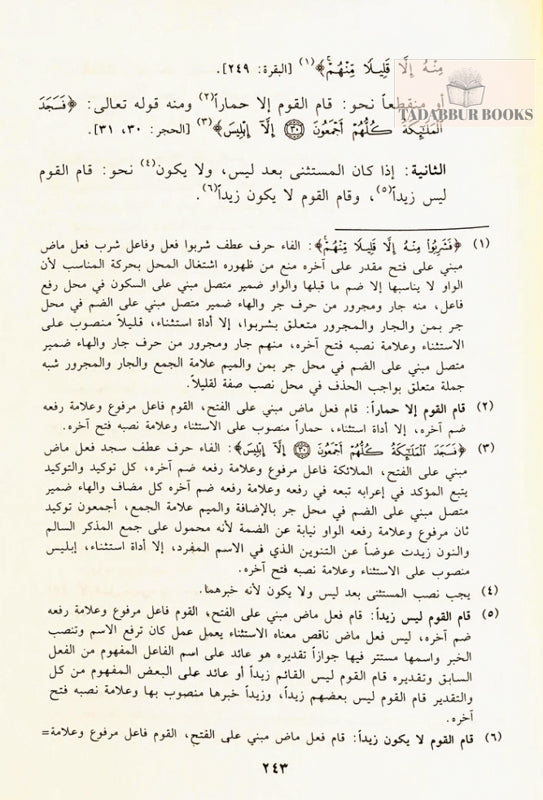 مِنْهُ إِلَّا قَلِيلًا مِّنْهُمْ﴾(١) [البقرة: ٢٤٩].
TADABBUR BOOKS
أو منقطعاً نحو: قام القوم إلا حماراً(٢) ومنه قوله تعالى: ﴿فَسَجَدَ
الْمَلَٰٓئِكَةُ كُلُّهُمْ أَجْمَعُونَ ۝٣٠ إِلَّآ إِبْلِيسَ﴾(٣) [الحجر: ٣٠، ٣١].
الثانية: إذا كان المستثنى بعد ليس، ولا يكون(٤) نحو: قام القوم
ليس زيداً(٥)، وقام القوم لا يكون زيداً(٦).
(١) ﴿فَشَرِبُوا۟ مِنْهُ إِلَّا قَلِيلًا مِّنْهُمْ﴾: الفاء حرف عطف شربوا فعل وفاعل شرب فعل ماض
مبني على فتح مقدر على آخره منع من ظهوره اشتغال المحل بحركة المناسب لأن
الواو لا يناسبها إلا ضم ما قبلها والواو ضمير متصل مبني على السكون في محل رفع
فاعل، منه جار ومجرور من حرف جر والهاء ضمير متصل مبني على الضم في محل
جر بمن والجار والمجرور متعلق بشربوا، إلا أداة استثناء، قليلاً منصوب على
الاستثناء وعلامة نصبه فتح آخره، منهم جار ومجرور من حرف جار والهاء ضمير
متصل مبني على الضم في محل جر بمن والميم علامة الجمع والجار والمجرور شبه
جملة متعلق بواجب الحذف في محل نصب صفة لقليلاً.
(٢) قام القوم إلا حماراً: قام فعل ماض مبني على الفتح، القوم فاعل مرفوع وعلامة رفعه
ضم آخره، إلا أداة استثناء، حماراً منصوب على الاستثناء وعلامة نصبه فتح آخره.
(٣) ﴿فَسَجَدَ الْمَلَٰٓئِكَةُ كُلُّهُمْ أَجْمَعُونَ ۝٣٠ إِلَّآ إِبْلِيسَ﴾: الفاء حرف عطف سجد فعل ماض
مبني على الفتح، الملائكة فاعل مرفوع وعلامة رفعه ضم آخره، كل توكيد والتوكيد
يتبع المؤكد في إعرابه تبعه في رفعه وعلامة رفعه ضم آخره كل مضاف والهاء ضمير
متصل مبني على الضم في محل جر بالإضافة والميم علامة الجمع، أجمعون توكيد
ثان مرفوع وعلامة رفعه الواو نيابة عن الضمة لأنه محمول على جمع المذكر السالم
والنون زيدت عوضاً عن التنوين الذي في الاسم المفرد، إلا أداة استثناء، إبليس
منصوب على الاستثناء وعلامة نصبه فتح آخره.
(٤) يجب نصب المستثنى بعد ليس ولا يكون لأنه خبرهما.
(٥) قام القوم ليس زيداً: قام فعل ماض مبني على الفتح، القوم فاعل مرفوع وعلامة رفعه
ضم آخره، ليس فعل ماض ناقص معناه الاستثناء يعمل عمل كان ترفع الاسم وتنصب
الخبر واسمها مستتر فيها جوازاً تقديره هو عائد على اسم الفاعل المفهوم من الفعل
السابق وتقديره قام القوم ليس القائم زيداً أو عائد على البعض المفهوم من كل
والتقدير قام القوم ليس بعضهم زيداً، وزيداً خبرها منصوب بها وعلامة نصبه فتح
آخره.
(٦) قام القوم لا يكون زيداً: قام فعل ماض مبني على الفتح، القوم فاعل مرفوع وعلامة=
٢٤٣